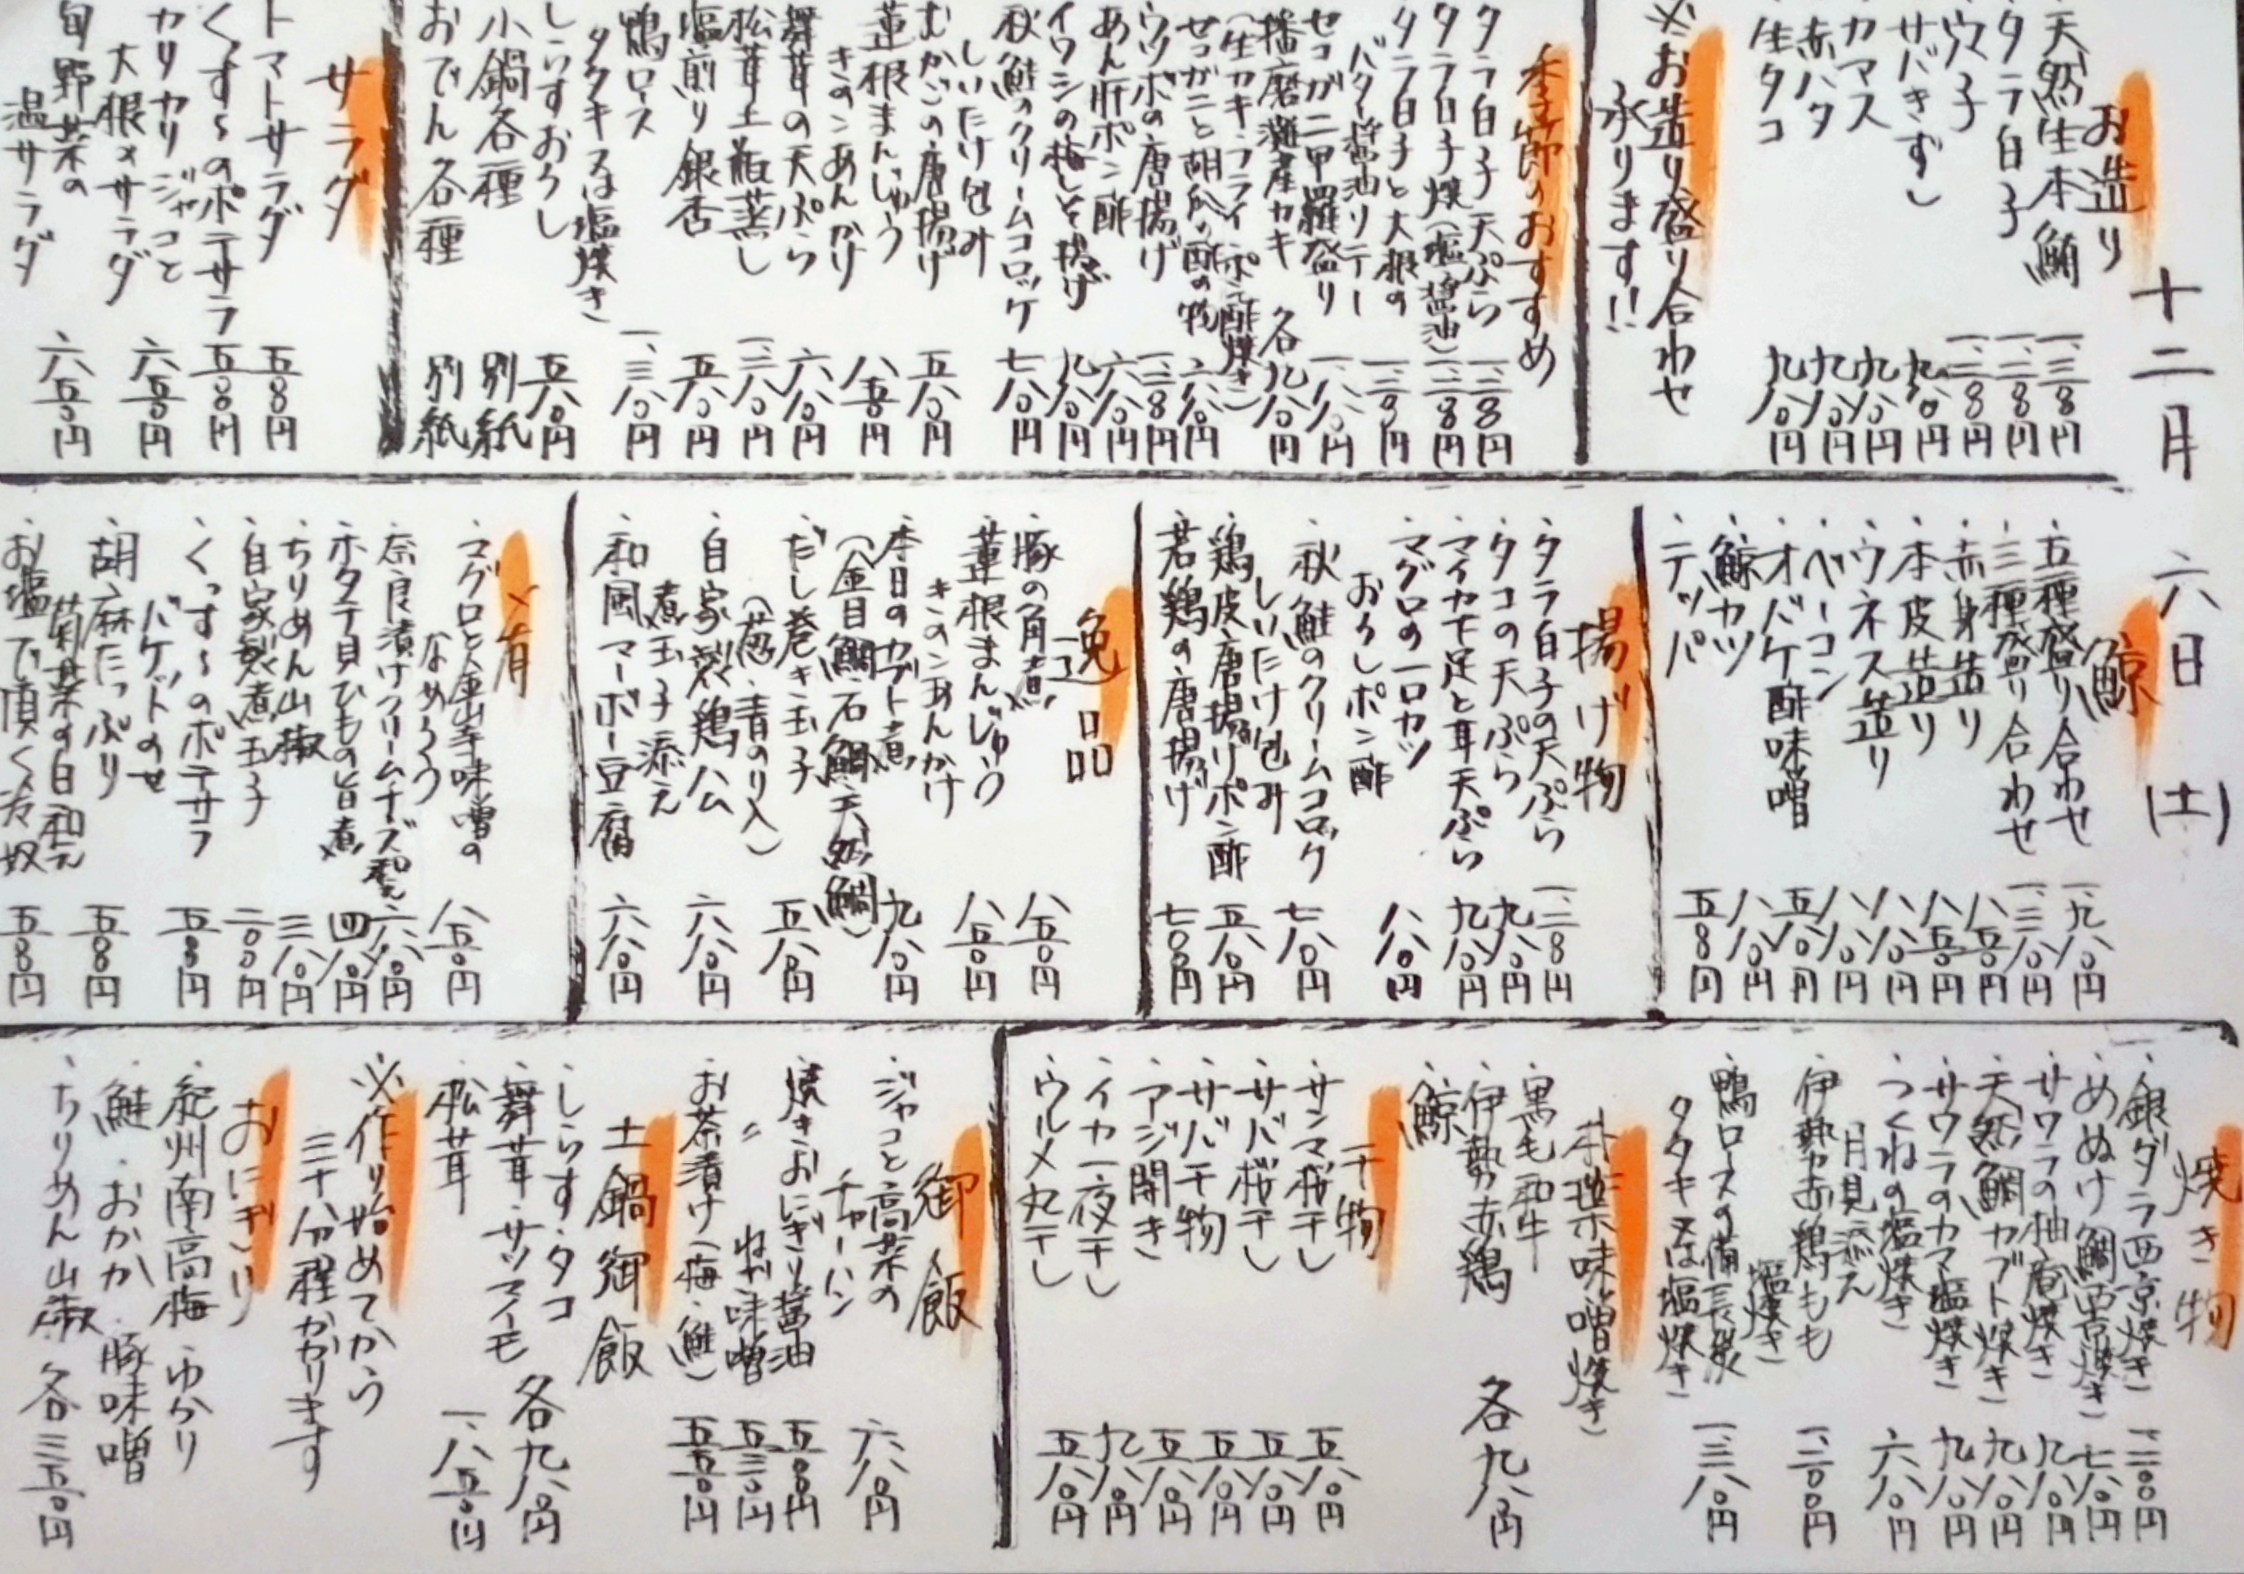 十二月 六日 (土)
お造り
天然生本鮪 一、三八〇円
タラ白子 一、二八〇円
穴子 一、二八〇円
サバきずし 九八〇円
カマス 九八〇円
赤ハタ 九八〇円
生タコ 九八〇円
※お造り盛り合わせ
承ります!!
季節のおすすめ
タラ白子 天ぷら
タラ白子 焼(塩・醤油)
タラ白子と大根の
バター醤油ソテー
セコガニ甲羅盛り
播磨灘産カキ 各九八〇円
(生カキフライ・ポン酢焼き)
セコガニと胡瓜の酢の物
ウツボの唐揚げ
あん肝ポン酢
イワシの梅しそ揚げ 九八〇円
秋鮭のクリームコロッケ 七八〇円
しいたけ包み
むかごの唐揚げ 五八〇円
蓮根まんじゅう 八五〇円
きのこあんかけ
舞茸の天ぷら 六八〇円
松茸土瓶蒸し
塩煎り銀杏 五八〇円
鴨ロース 一、三八〇円
タタキ又は塩焼き
しらすおろし 五八〇円
小鍋各種 別紙
おでん各種 別紙
サラダ
トマトサラダ 五八〇円
くっすーのポテサラ 五五〇円
カリカリジャコと
大根のサラダ 六五〇円
旬野菜の
温サラダ 六五〇円
鯨
・五種盛り合わせ 一、九八〇円
・三種盛り合わせ 一、三八〇円
・赤身造り 八五〇円
・本皮造り 八五〇円
・ウネス造り 八八〇円
・ベーコン 八八〇円
・オバケ酢味噌 五八〇円
・鯨カツ 八八〇円
・テッパ 五八〇円
揚げ物
・タラ白子の天ぷら 一、二八〇円
・タコの天ぷら 九八〇円
・マイカ下足と耳天ぷら 九八〇円
・マグロの一口カツ 八八〇円
おろしポン酢
・秋鮭のクリームコロッケ 七八〇円
しいたけ包み
・鶏皮唐揚げポン酢 五八〇円
・若鶏の唐揚げ 七八〇円
逸品
・豚の角煮 八五〇円
・蓮根まんじゅう 八五〇円
きのこあんかけ
・本日のカブト煮 九八〇円
(金目鯛・石鯛・天然鯛)
・だし巻き玉子 五八〇円
(葱・青のり入)
・自家製鶏ハム 六八〇円
煮玉子添え
・和風マーボー豆腐 六八〇円
〆肴
・マグロと金山寺味噌の 八五〇円
なめろう
・奈良漬けクリームチーズ和え 六八〇円
・ホタテ貝ひもの旨煮 四八〇円
・ちりめん山椒 三八〇円
・自家製煮玉子 二〇〇円
・くっすーのポテサラ
バゲットのせ
・胡麻たっぷり 五八〇円
菊菜の白和え
・お塩で頂く冷奴 五八〇円
焼き物
・銀ダラ西京焼き
・めぬけ鯛西京焼き 七八〇円
・サワラの柚庵焼き 九八〇円
・天然鯛カブト焼き 九八〇円
・サワラのカマ塩焼き 九八〇円
・つくねの塩焼き 六八〇円
月見添え
・伊勢赤鶏もも
塩焼き
・鴨ロースの備長炭 一、三八〇円
タタキ又は塩焼き
朴葉味噌焼き
・黒毛和牛
・伊勢赤鶏 各九八〇円
・鯨
干物
・サンマ桜干し 五八〇円
・サバ桜干し 五八〇円
・サバ干物 五八〇円
・アジ開き 五八〇円
・イカ一夜干し 九八〇円
・ウルメ丸干し 五八〇円
御飯
・ジャコと高菜の
チャーハン 六八〇円
・焼きおにぎり醤油 五〇〇円
〃 ねぎ味噌 五三〇円
・お茶漬け(梅・鮭) 五五〇円
土鍋御飯
・しらす・タコ
・舞茸・サツマイモ 各九八〇円
・松茸 一、八五〇円
※作り始めてから
三十分程かかります
おにぎり
・紀州南高梅・ゆかり
・鮭・おかか・豚味噌
・ちりめん山椒 各三五〇円